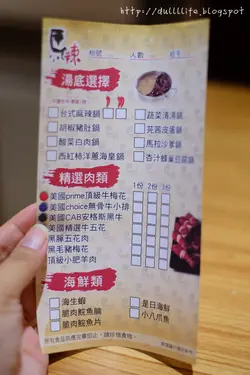 http://dullllife.blogspot
辣
桌號 人數
湯底選擇
台式麻辣鍋 蔬菜清湯鍋
胡椒豬肚鍋 芫茜皮蛋鍋
酸菜白肉鍋 馬拉沙爹鍋
西紅柿洋蔥海皇鍋
精選肉類
1份 2份 3份
美國prime頂級牛梅花
美國choice無骨牛小排
美國CAB安格斯黑牛
美國精選牛五花
黑豚五花肉
黑毛豬梅花
頂級小肥羊肉
海鮮類
海生蝦 是日海鮮
脆肉鯇魚腩 小八爪魚
脆肉鯇魚片